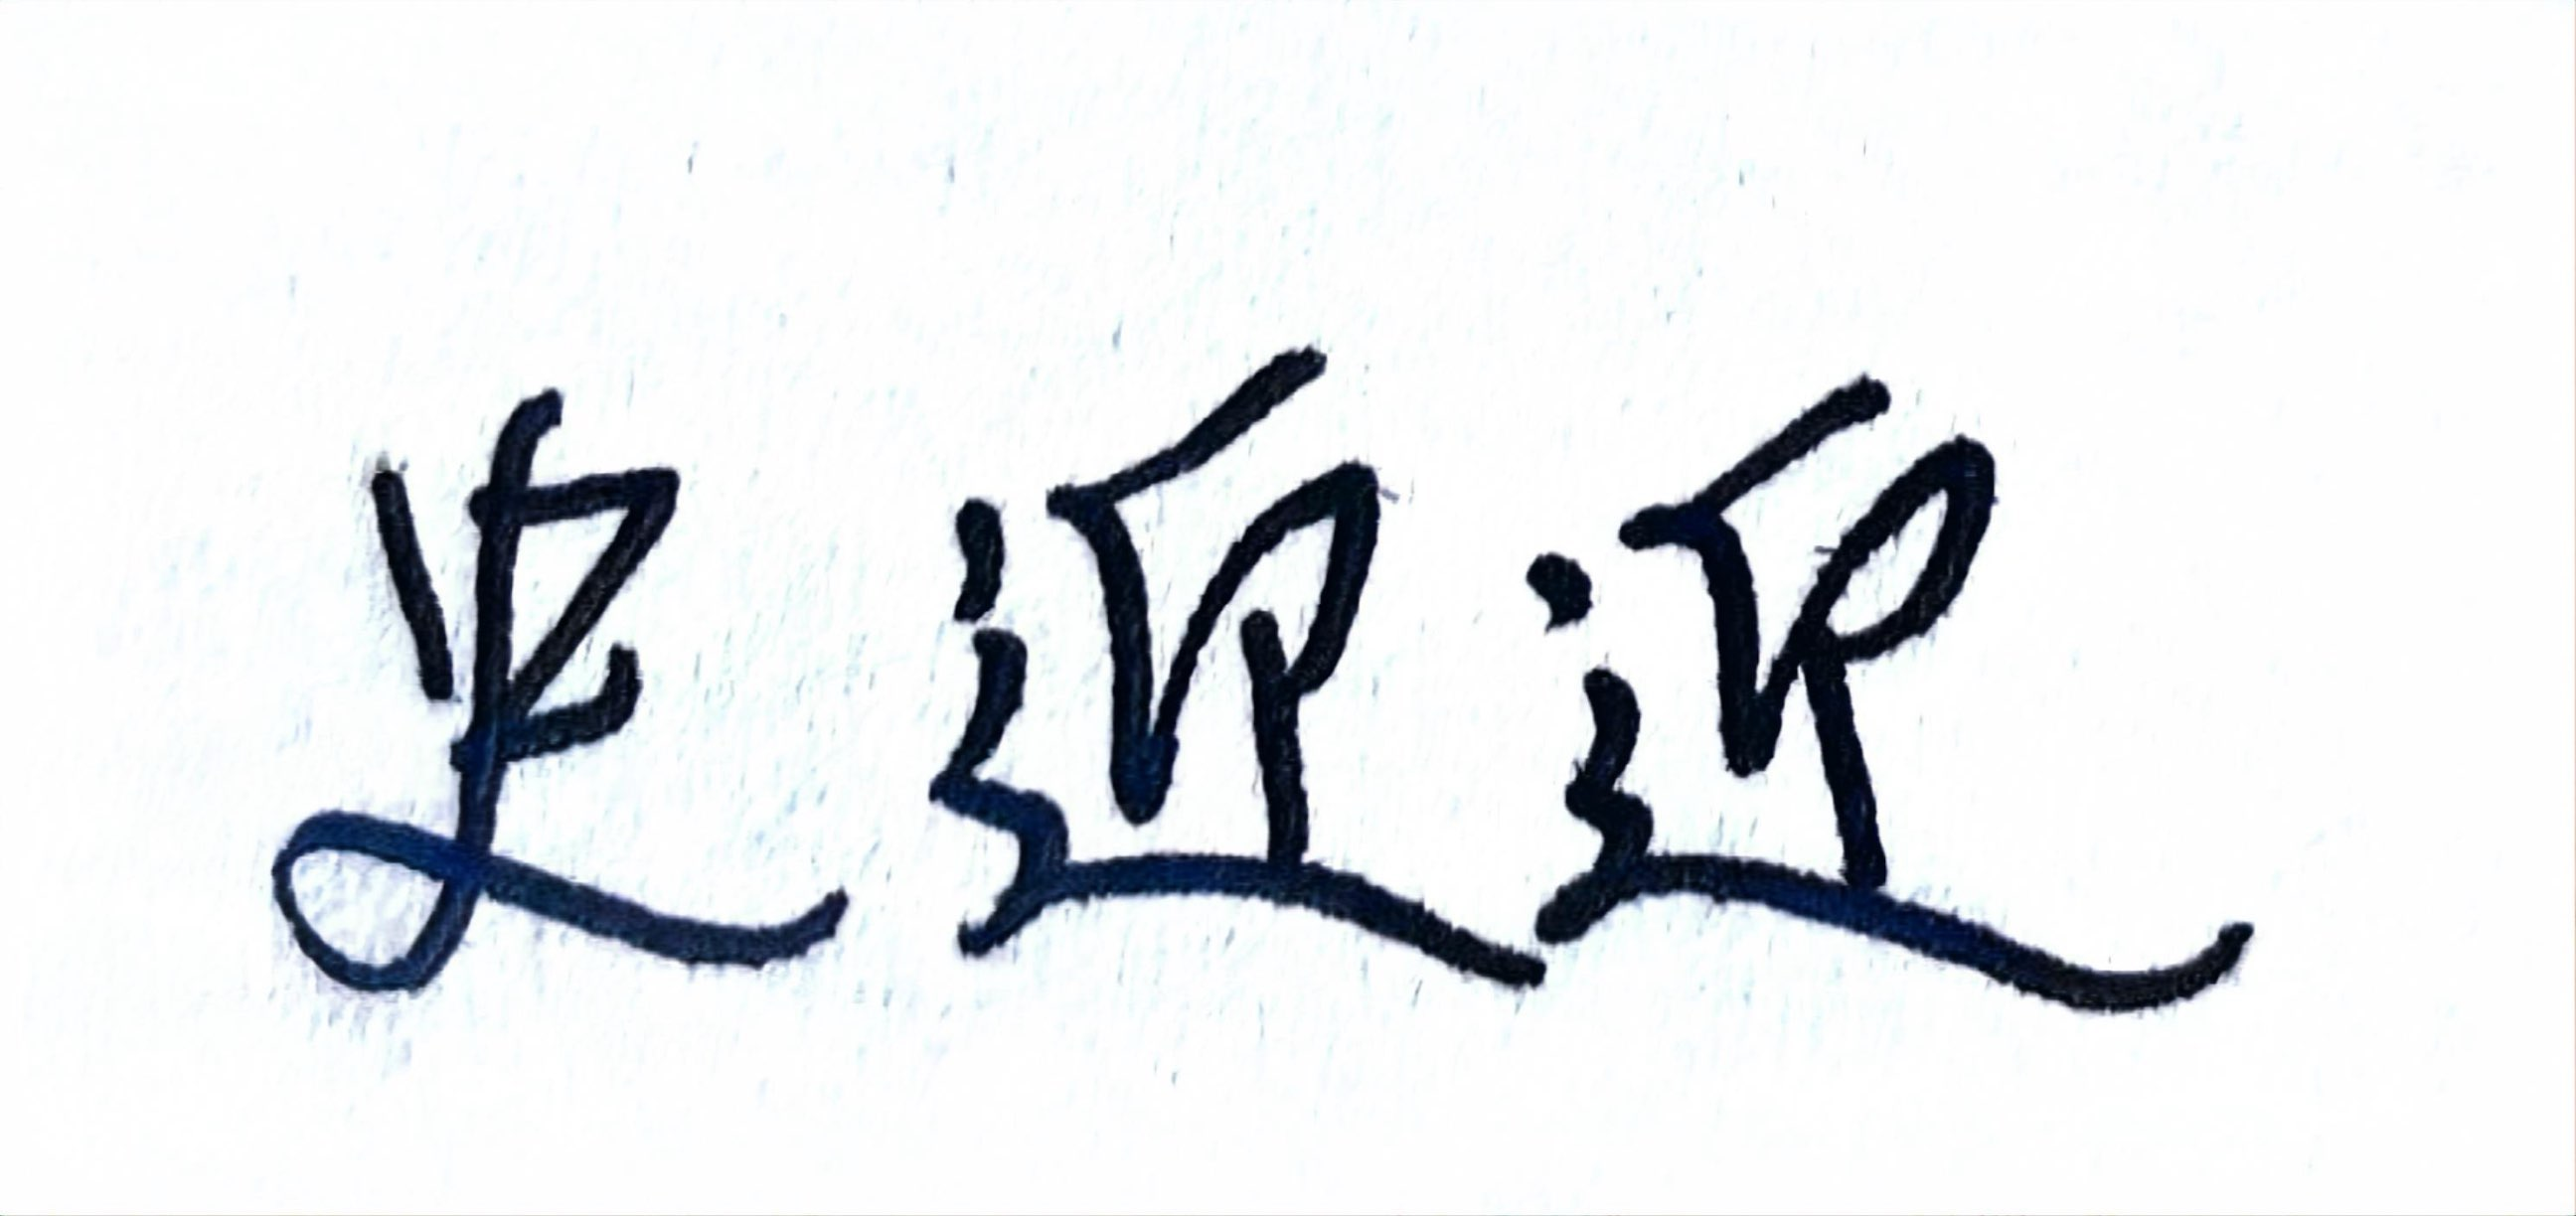 史迎迎